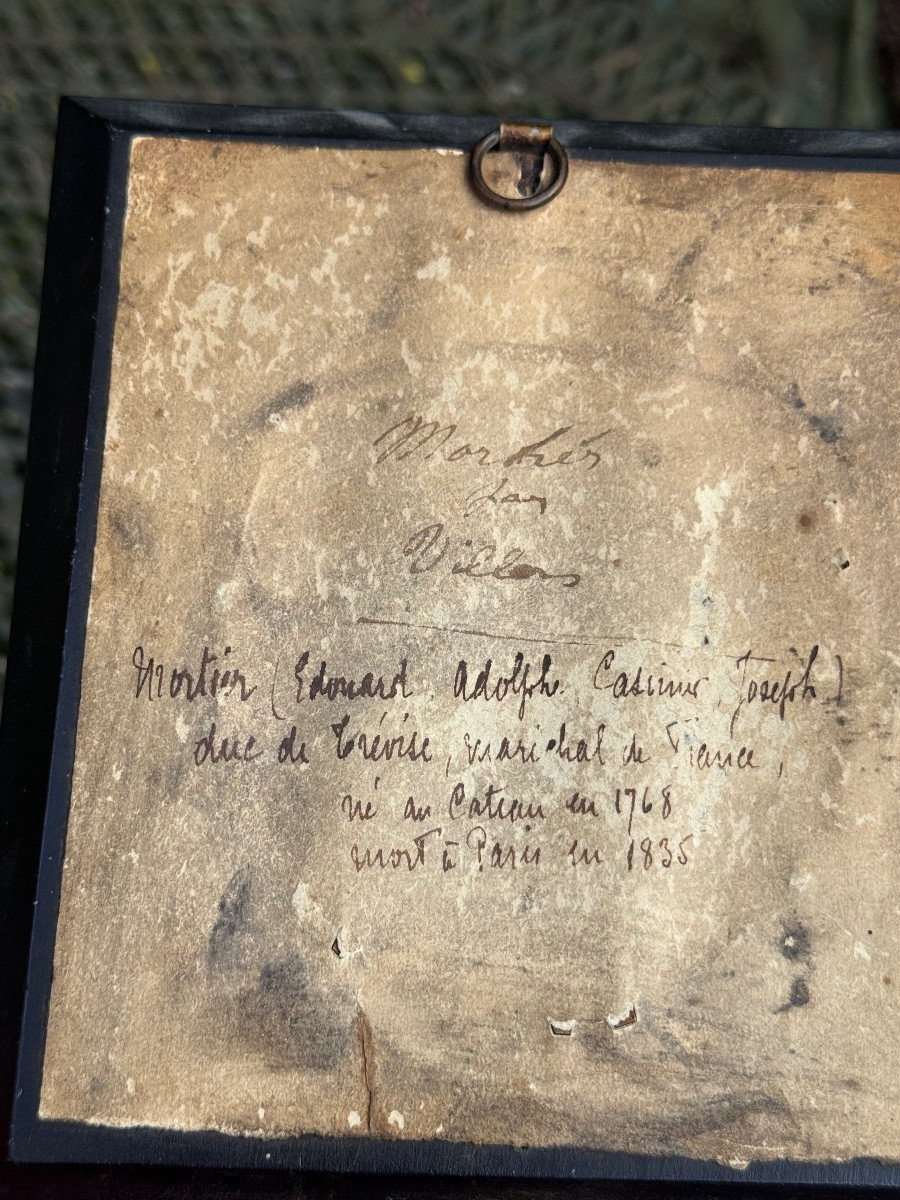 Mortiér
par
Villers
Mortiér (Edouard. Adolphe. Casimir, Joseph.)
duc de Trévise, maréchal de France,
né au Cateau en 1768
mort à Paris en 1835